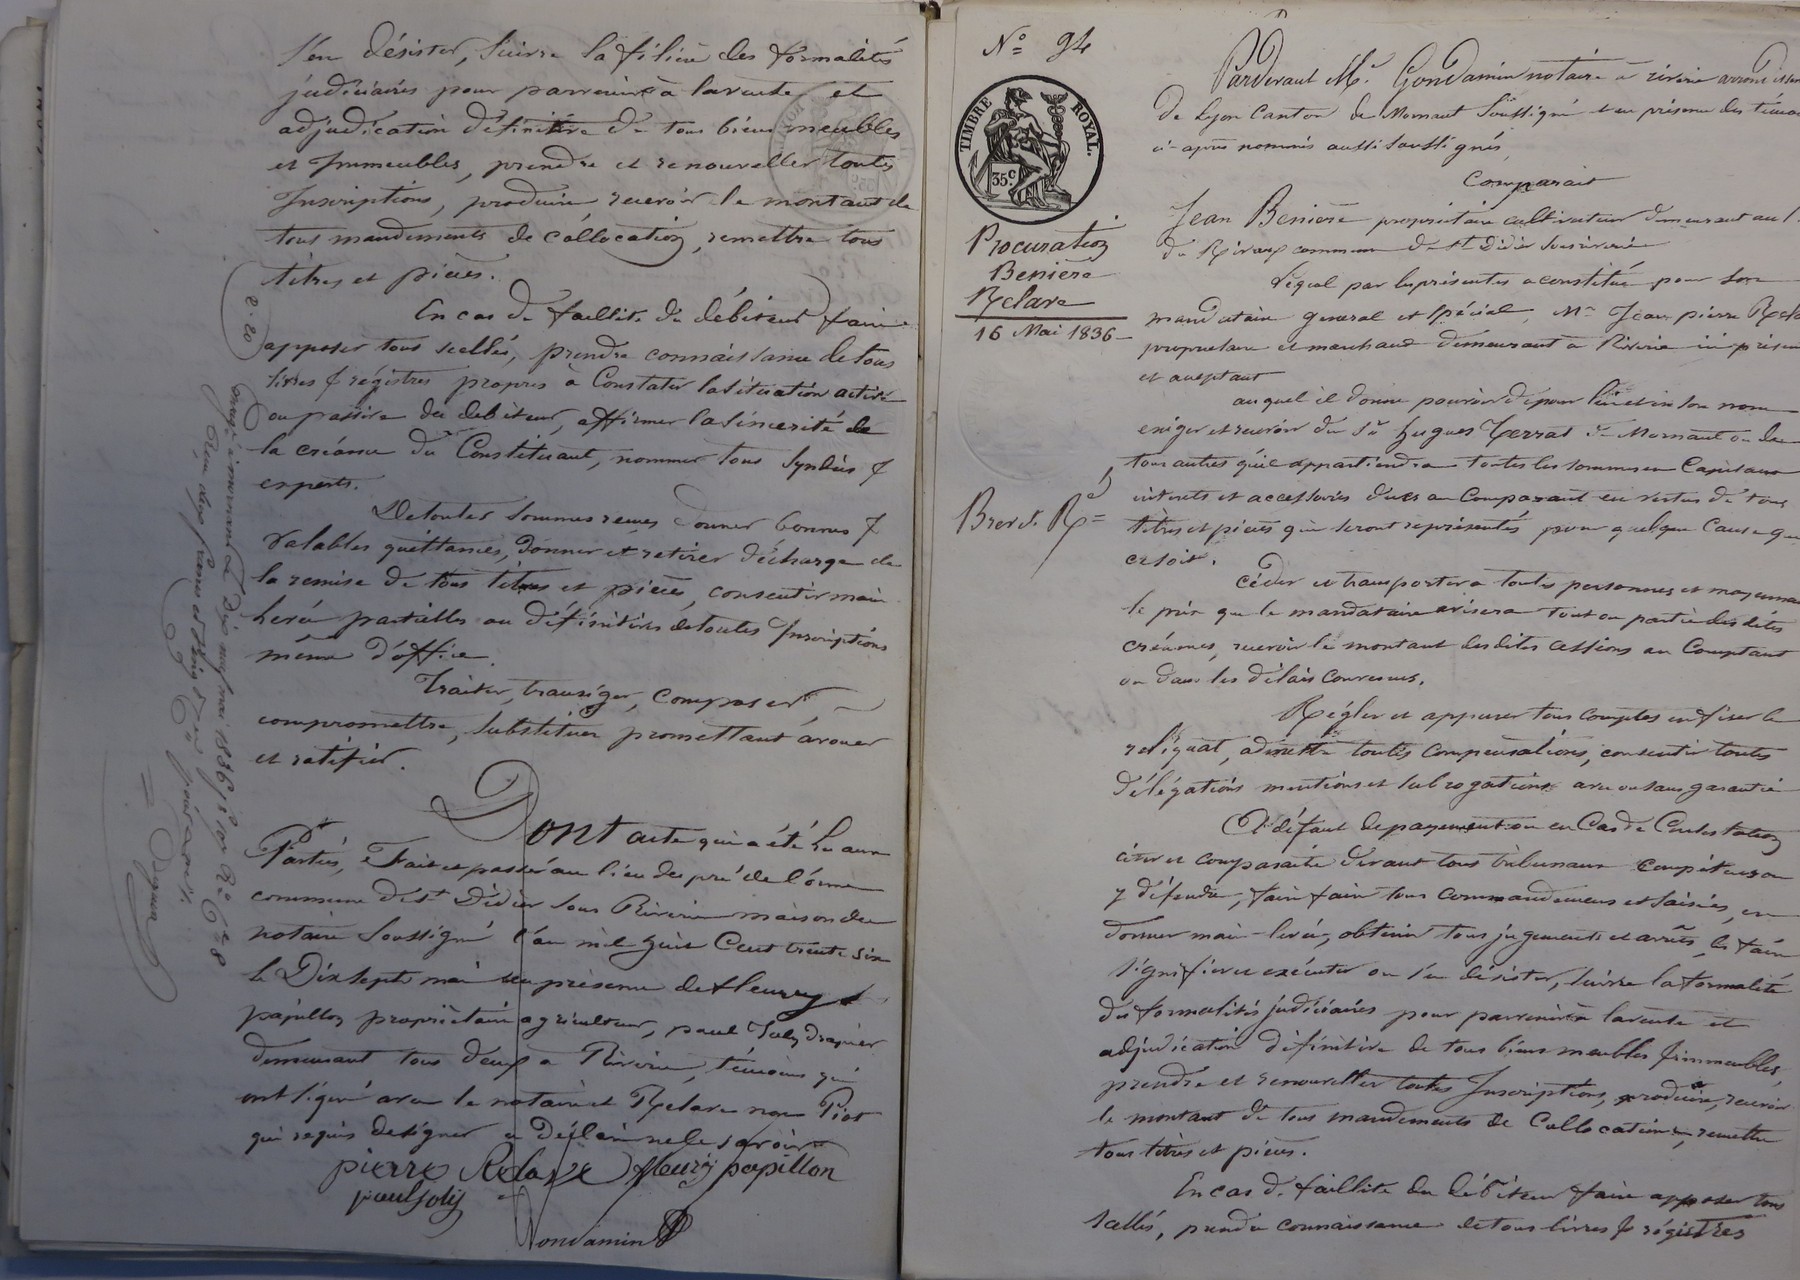 s'en désister, suivre la filière des formalités
judiciaires pour parvenir à la vente et
adjudication définitive de tous biens meubles
et Immeubles, prendre et renouveller toutes
Inscriptions, produire, recevoir le montant de
tous mandements de collocation, remettre tous
titres et pièces.
En cas de faillite du débiteur faire
apposer tous scellés, prendre connaissance de tous
livres & régistres propres à Constater la situation active
ou passive du debiteur, affirmer la sincerité de
la créance du Constituant, nommer tous syndics &
experts.
De toutes sommes reçues donner bonnes &
valables quittances, donner et retirer décharge de
la remise de tous titres et pièces, consentir main
levée partielles ou définitives de toutes Inscriptions
même d'office.
Traiter, transiger, composer,
compromettre, substituer promettant avouer
et ratifier.
Dont acte qui a été lu aux
Parties, Fait et passé au lieu du pré de l'orme
commune de St Didier sous Riverie maison du
notaire soussigné l'an mil huit Cent trente six
le Dix sept mai en présence de fleury
papillon propriétaire agriculteur, paul Joly drapier
demeurant tous deux à Riverie, témoins qui
ont signé avec le notaire et Relave non Piot
qui requis de signer a Déclaré ne le savoir
pierre Relave fleury papillon
paul joly
Condamin
Enregistré à mornant le Dix neuf mai 1836, f° 107 R° C 8
Reçu deux francs et vingt C.es pour décime.
2-20
N° 94
TIMBRE ROYAL.
35 c
Procuration
Benière
Relave
16 Mai 1836
Brevet Ré
Pardevant Me. Condamin notaire à riverie arrondissem
De Lyon Canton de Mornant soussigné et en présence des témoi
ci-après nommés aussi soussignés,
Comparait
Jean Benière propriétaire cultivateur demeurant au l
du commune de St didier sous riverie
lequel par les présentes a constitué pour son
mandataire general et spécial, Mr Jean pierre Rela
proprietaire et marchand demeurant à Riverie ici présen
et acceptant
au quel il donne pouvoir de pour lui et en son nom
exiger et recevoir du Sr hugues Terrat de Mornant ou de
tous autres qu'il appartiendra toutes les sommes en Capitaux
intérets et accessoires dues au Comparant en vertu de tous
titres et pièces qui seront représentés pour quelque Cause que
ce soit.
Céder et transporter à toutes personnes et moyennan
le prix que le mandataire avisera tout ou partie des dites
créances, recevoir le montant des dites cessions au Comptant
ou dans les délais convenus.
Régler et appurer tous comptes en fixer le
reliquat, admettre toutes compensations, consentir toutes
délégations mentions et subrogations avec ou sans garantie
A défaut de payement ou en Cas de Contestation
citer et comparaitre devant tous tribunaux compétens ou
y défendre, faire faire tous commandemens et saisies, en
donner main-levée, obtenir tous jugements et arrêts, les faire
signifier et exécuter ou s'en désister, suivre la formalité
des formalités judiciaires pour parvenir à la vente et
adjudication définitive de tous biens meubles & immeubles,
prendre et renouveller toutes Inscriptions, produire, recevoir
le montant de tous mandements de Collocation, remettre
tous titres et pièces.
En cas de faillite du débiteur faire apposer tous
scellés, prendre connaissance de tous livres & régistres